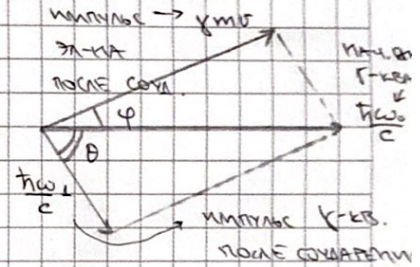 ИМПУЛЬС → γmv
ЭЛ-НА
ПОСЛЕ СОУД.
НАЧ.
γ-КВ
ħω₀/c
φ
θ
ħω₁/c
ИМПУЛЬС γ-КВ.
ПОСЛЕ СОУДАРЕНИ